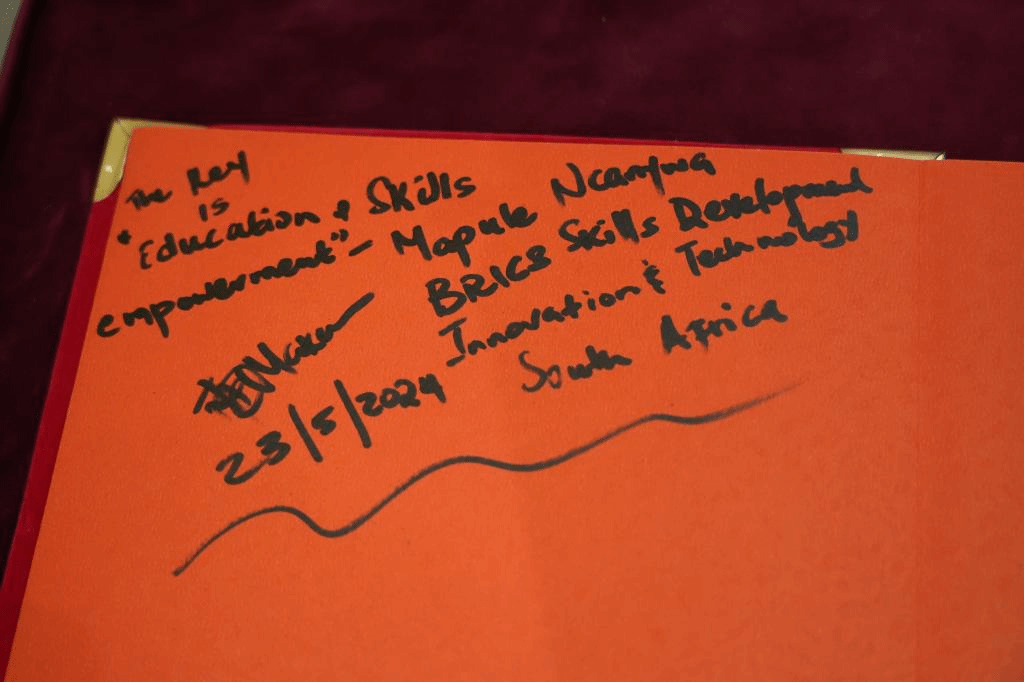 The Key
is
"Education & Skills
empowerment" - Mapule Ncanywa
BRICS Skills Development
Innovation & Technology
23/5/2024 South Africa